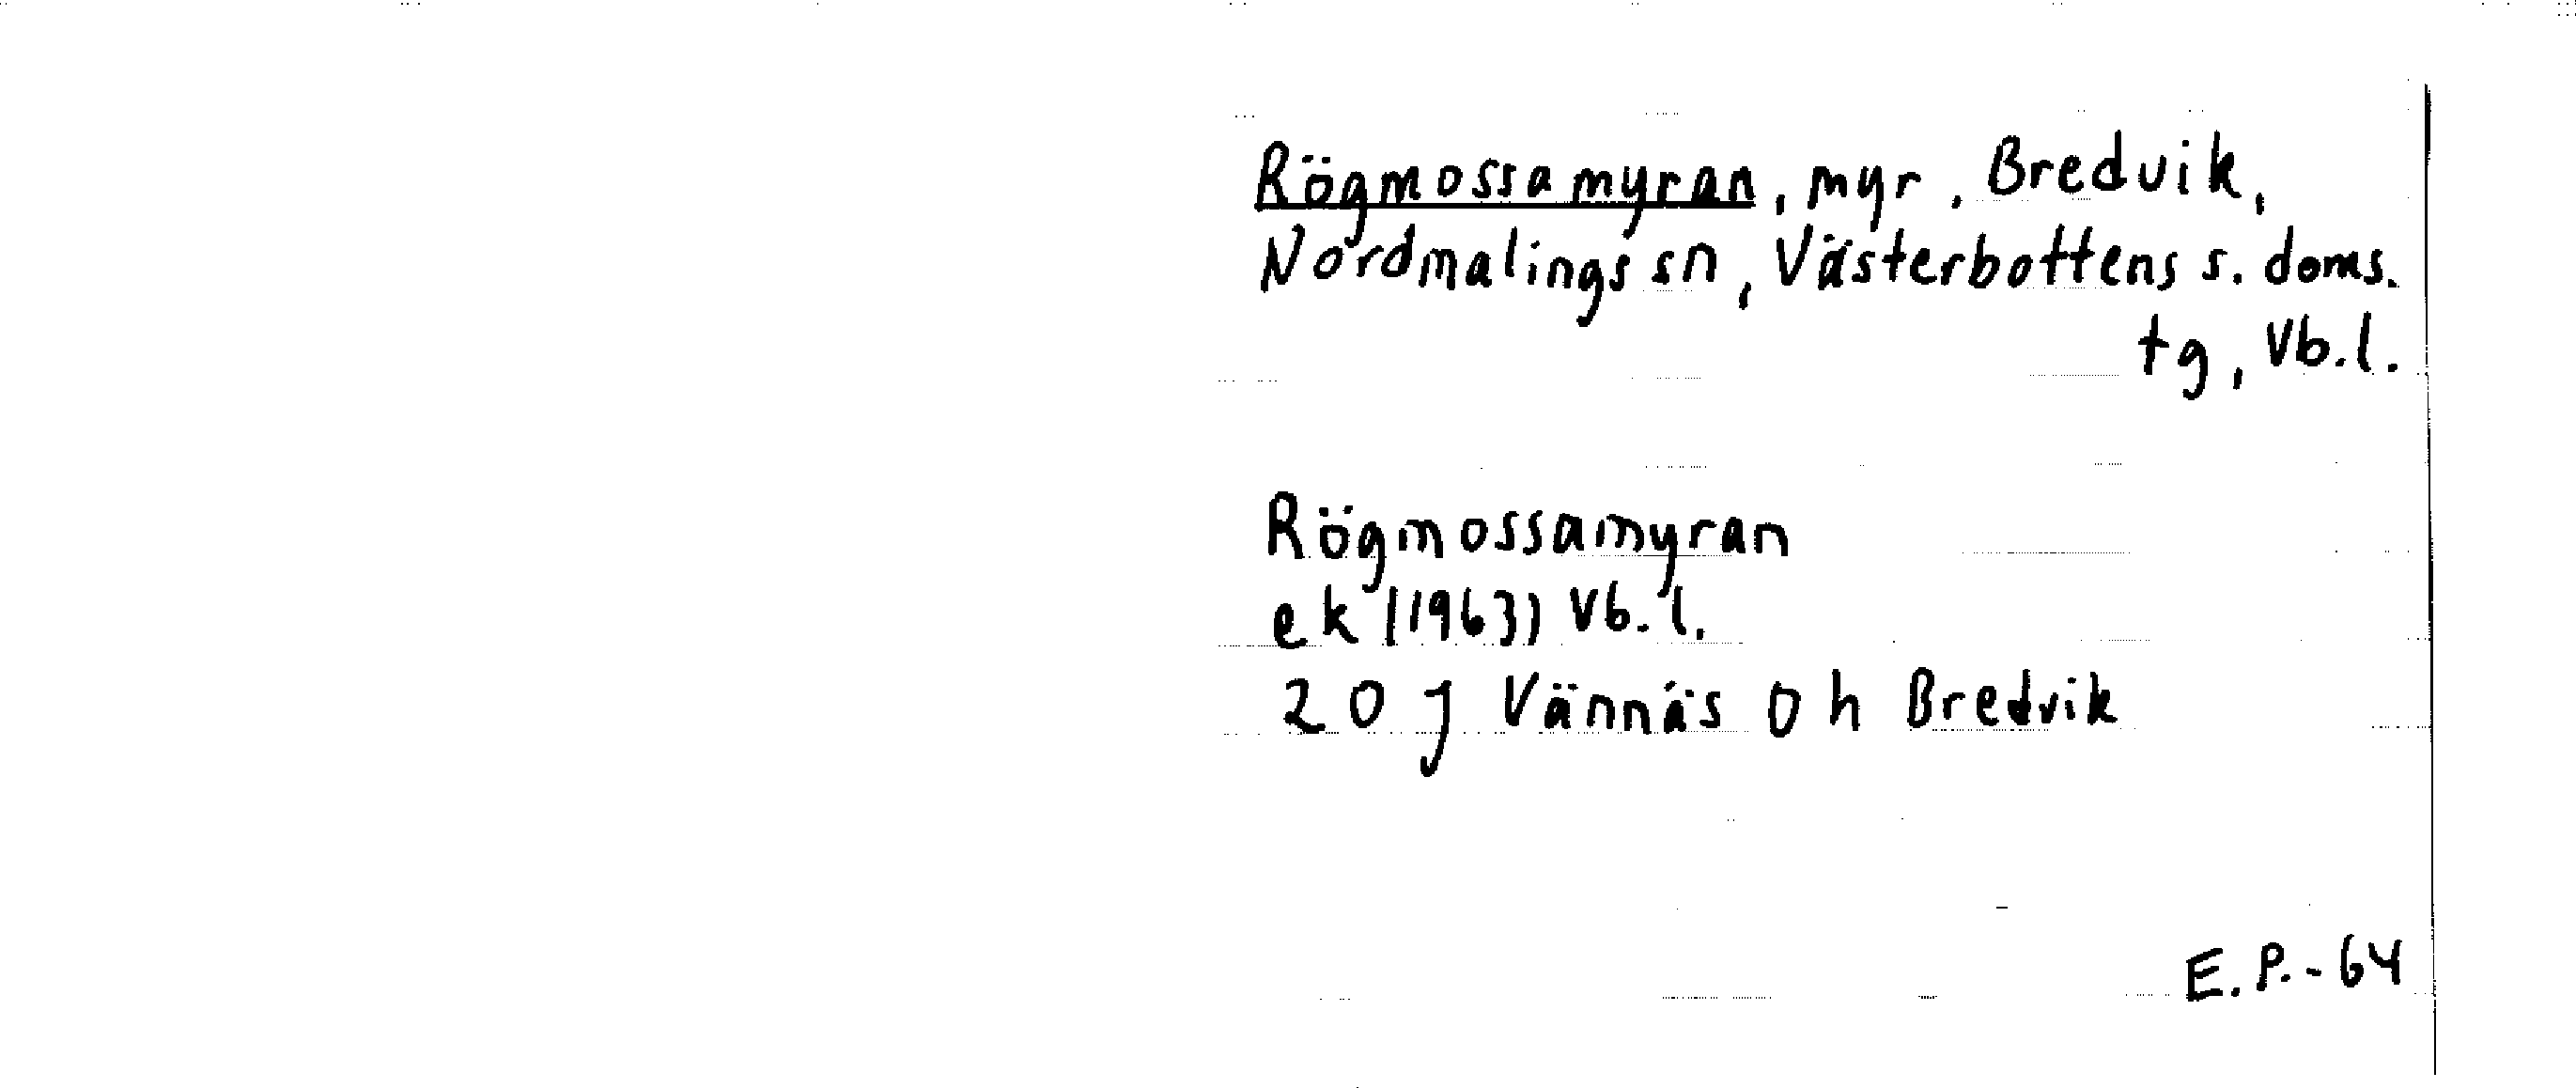 Rögmossamyran, myr, Bredvik,
Nordmalings sn, Västerbottens s. doms.
tg, Vb.l.
Rögmossamyran
ek (1963) Vb.l.
20 J Vännäs 0 h Bredvik
E.P.-64